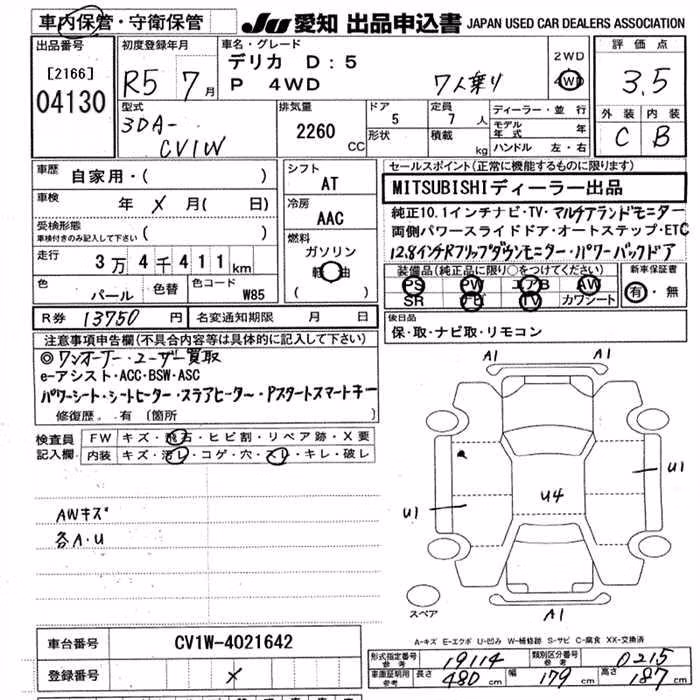 車内保管・守衛保管 JU 愛知 出品申込書 JAPAN USED CAR DEALERS ASSOCIATION
出品番号 [2166] 04130
初度登録年月 R5 7月
車名・グレード デリカ D:5
P 4WD 7人乗り
2WD 4WD
評価点 3.5
外装 内装
C B
型式 3DA-CV1W
排気量 2260 CC
ドア 5
形状
定員 7人
積載 kg
ディーラー・並行
モデル年式 年
ハンドル 左・右
車歴 自家用・( )
車検 年 メ 月( 日)
受検形態 車検付きのみ記入して下さい ( )
走行 3万4千411km
色 パール 色替 色コード W85
シフト AT
冷房 AAC
燃料 ガソリン 軽油 ( )
セールスポイント(正常に機能するものに限ります)
MITSUBISHIディーラー出品
純正10.1インチナビ・TV・マルチアラウンドモニター
両側パワースライドドア・オートステップ・ETC
12.8インチRフリップダウンモニター・パワーバックドア
装備品(純正品に限り○をつけてください)
PS PW エアB AW
SR ナビ TV カワシート
新車保証書 有・無
R券 13750円 名変通知期限 月 日
後日品
保・取・ナビ取・リモコン
注意事項申告欄(不具合内容等は具体的に記入して下さい)
◎ワンオーナー・ユーザー買取
e-アシスト・ACC・BSW・ASC
パワーシート・シートヒーター・ステアヒーター・Pスタートスマートキー
修復歴・有(箇所
検査員記入欄
FW キズ・飛石・ヒビ割・リペア跡・X要
内装 キズ・汚レ・コゲ・穴・スレ・キレ・破レ
AWキズ
各A・U
A1
A1
U1
U4
U1
A1
スペア
A-キズ E-エクボ U-凹み W-補修跡 S-サビ C-腐食 XX-交換済
車台番号 CV1W-4021642
登録番号 メ
形式指定番号 参考 19114 類別区分番号 参考 0215
車庫証明用 参考 長さ 480cm 幅 179cm 高さ 187cm